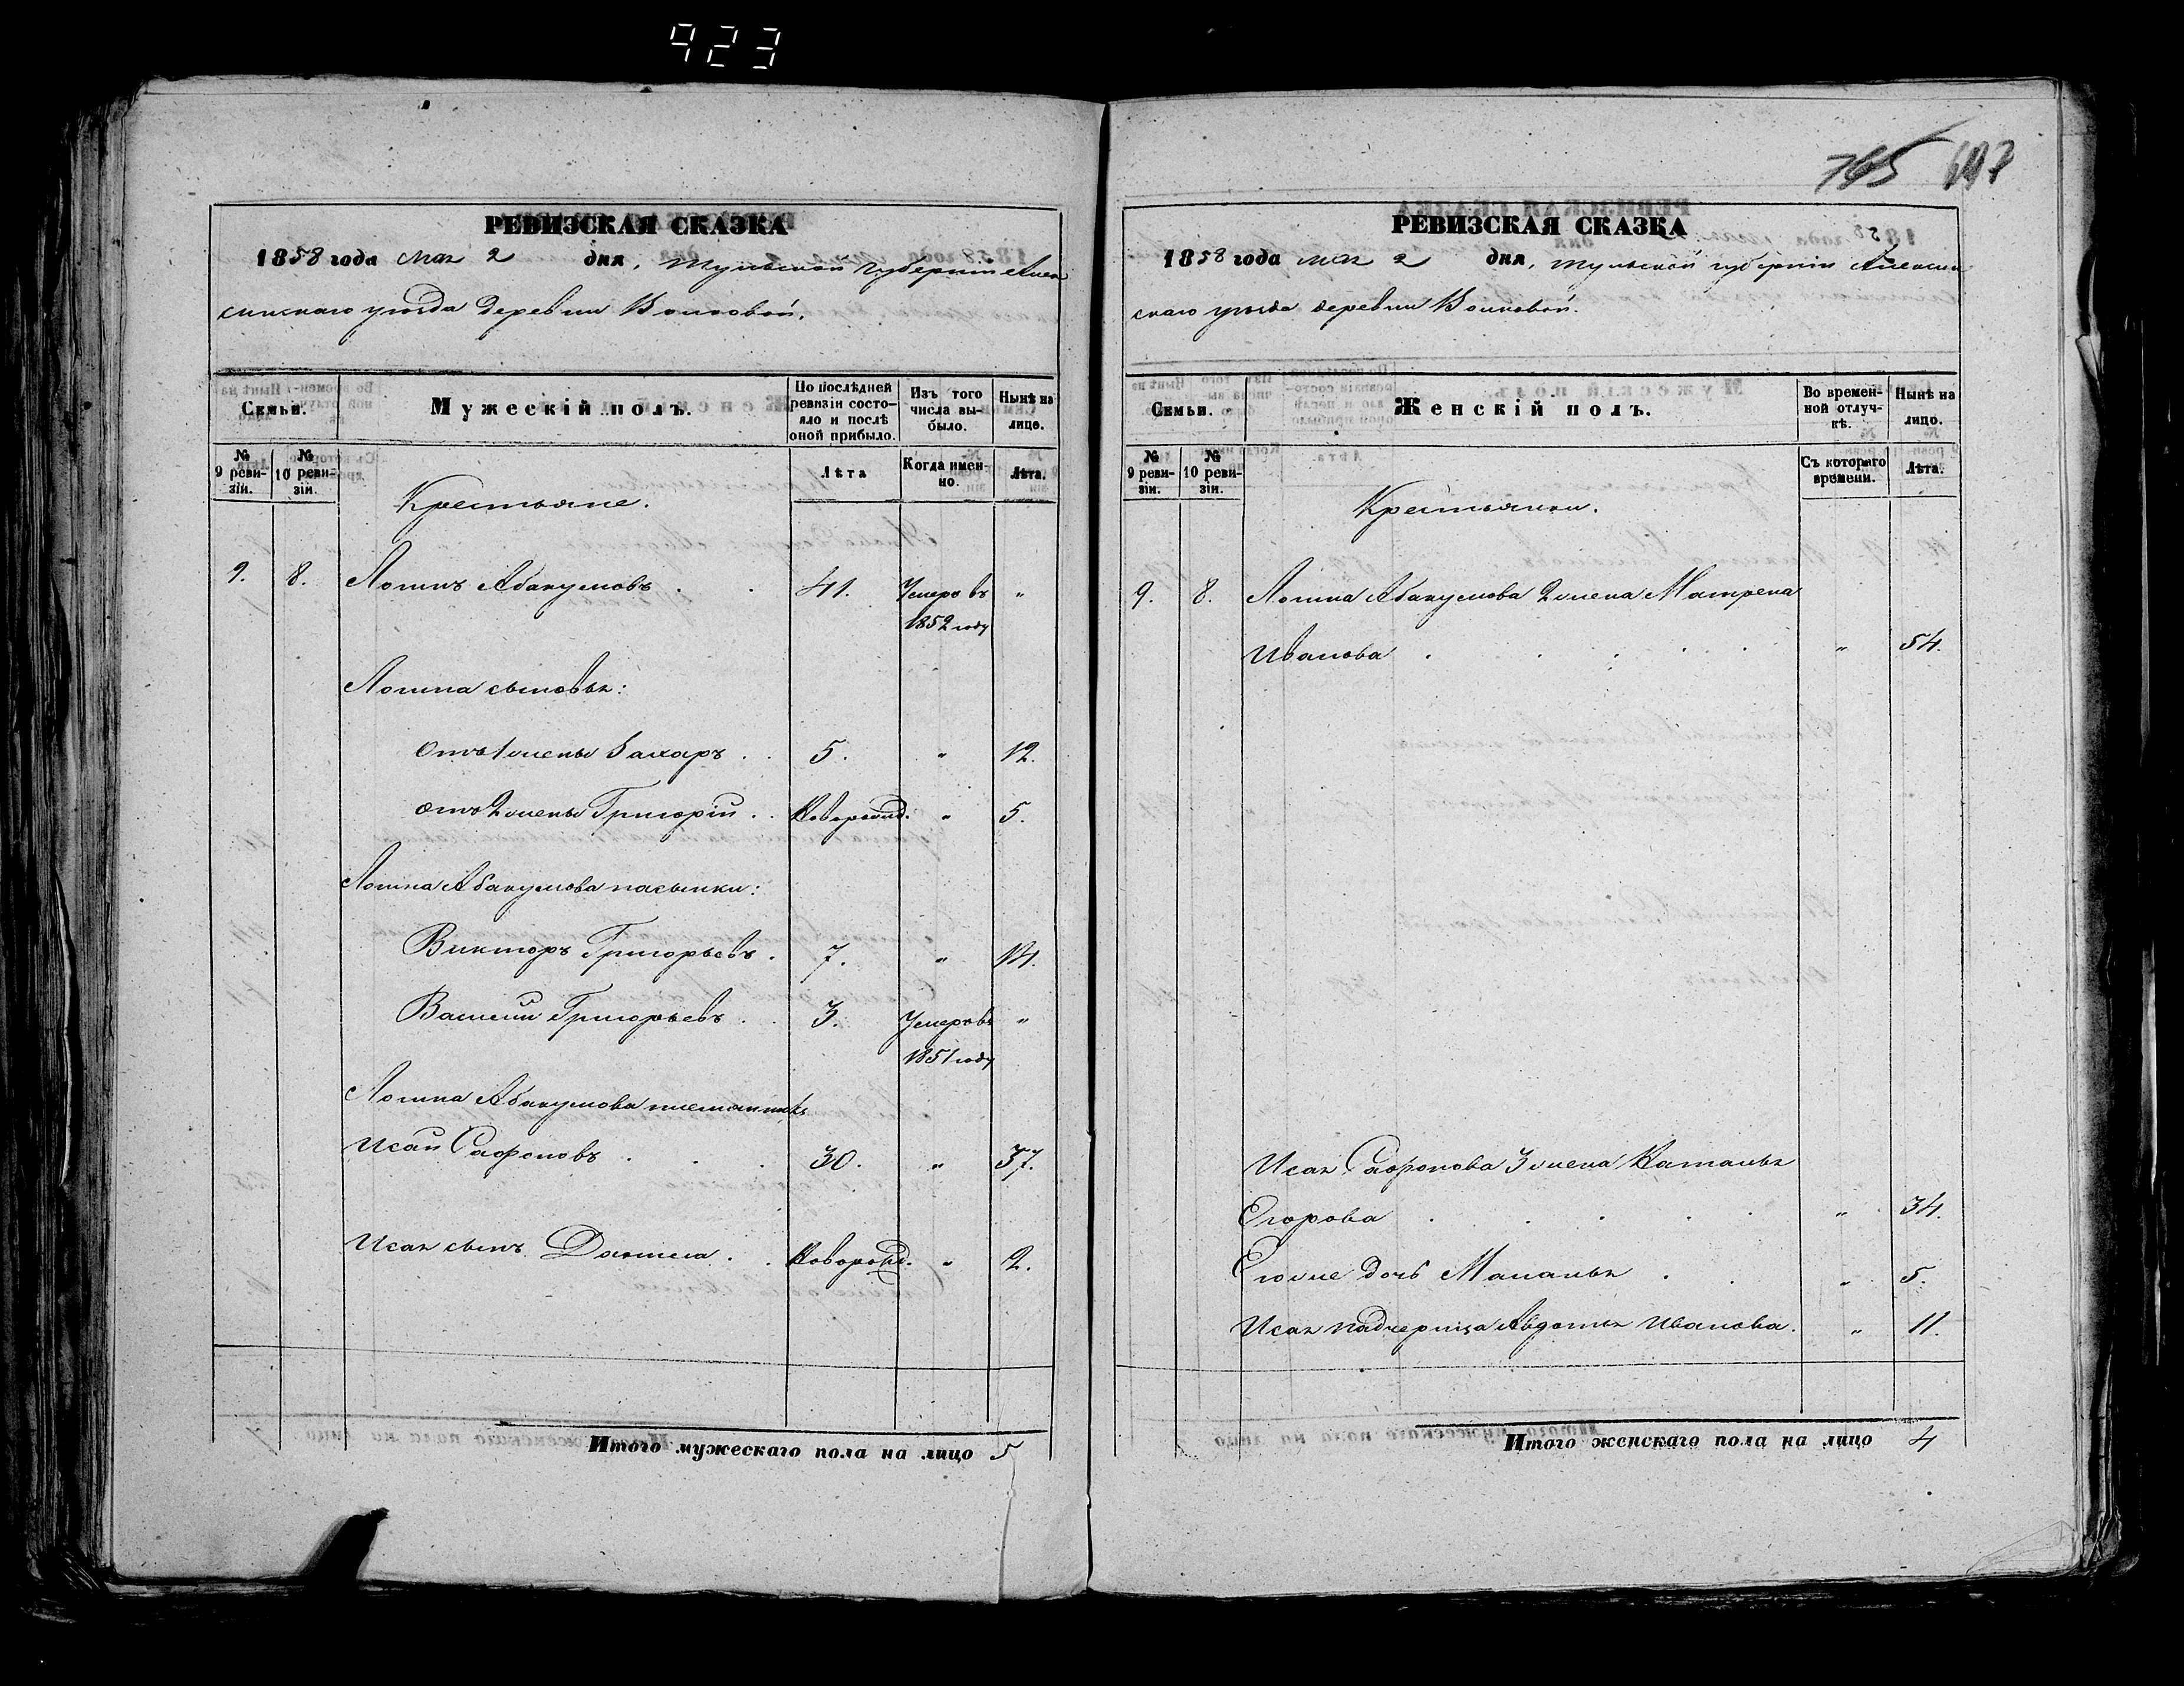 923
765
РЕВИЗСКАЯ СКАЗКА
1858 года Мая 2 дня, Тульской Губерніи Алек
синскаго уѣзда Деревни Волковой.
Семьи.
Мужескій полъ.
По послѣдней ревизіи состо-
яло и послѣ
оной прибыло.
Изъ того
числа вы-
было.
Нынѣ на
лицо.
№
9 реви-
зіи.
№
10 реви-
зіи.
Лѣта
Когда имен-
но.
Лѣта.
Крестьяне.
9. 8. Логинъ Абакумовъ . . 41. Умеръ въ "
1852 году
Логина сыновья:
отъ 1 жены Захаръ . . 5. " 12.
отъ 2 жены Григорій . . Новорожд. " 5.
Логина Абакумова пасынки:
Викторъ Григорьевъ . 7. " 14.
Василій Григорьевъ . . 3. Умеръ въ "
1851 году
Логина Абакумова племянникъ
Исай Сафоновъ . . . 30. " 37.
Исая сынъ Данила . . Новорожд. " 2.
Итого мужескаго пола на лицо 5
РЕВИЗСКАЯ СКАЗКА
1858 года Мая 2 дня, Тульской губерніи Алексин
скаго уѣзда деревни Волковой.
Семьи.
Женскій полъ.
Во времен-
ной отлуч-
кѣ.
Нынѣ на
лицо.
№
9 реви-
зіи.
№
10 реви-
зіи.
Съ котораго
времени.
Лѣта.
Крестьянки.
9. 8. Логина Абакумова 2 жена Матрена
Иванова . . . . . " 54.
Исая Сафонова 3 жена Наталья
Егорова . . . . . " 34.
Его же дочь Маланья . . " 5.
Исая падчерица Авдотья Иванова. " 11.
Итого женскаго пола на лицо 4